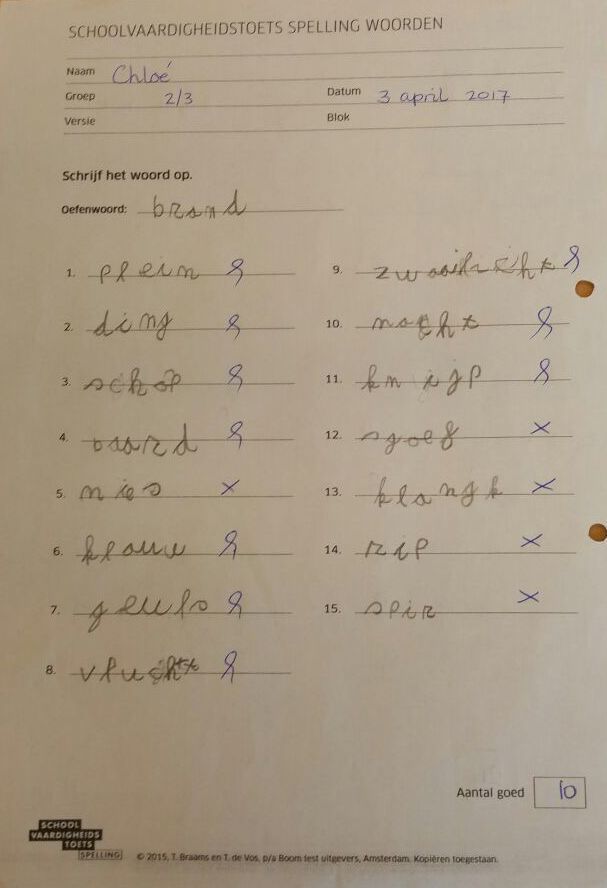 SCHOOLVAARDIGHEIDSTOETS SPELLING WOORDEN
Naam Chloé
Groep 2/3 Datum 3 april 2017
Versie Blok
Schrijf het woord op.
Oefenwoord: brand
1. plein
2. ding
3. schop
4. baard
5. nies
6. klauw
7. geuls
8. vlucht
9. zwaailicht
10. nacht
11. knijp
12. sgoef
13. klangk
14. rip
15. spir
Aantal goed 10
SCHOOL
VAARDIGHEIDS
TOETS
SPELLING © 2015, T. Braams en T. de Vos, p/a Boom test uitgevers, Amsterdam. Kopiëren toegestaan.